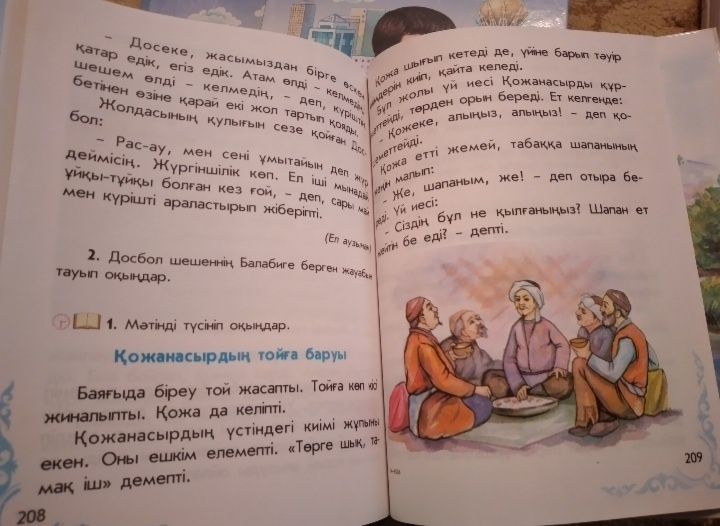 – Досеке, жасымыздан бірге өскен
қатар едік, егіз едік. Атам өлді – келмедің,
шешем өлді – келмедің, – деп, күріштің
бетінен өзіне қарай екі жол тартып қояды.
Жолдасының құлығын сезе қойған Дос-
бол:
– Рас-ау, мен сені ұмытайын деп жүр
деймісің. Жүргіншілік көп. Ел іші мынадай
ұйқы-тұйқы болған кез ғой, – деп, сары май
мен күрішті араластырып жіберіпті.
(Ел аузынан)
2. Досбол шешеннің Балабиге берген жауабын
тауып оқыңдар.
1. Мәтінді түсініп оқыңдар.
Қожанасырдың тойға баруы
Баяғыда біреу той жасапты. Тойға көп кісі
жиналыпты. Қожа да келіпті.
Қожанасырдың үстіндегі киімі жұпыны
екен. Оны ешкім елемепті. «Төрге шық, та-
мақ іш» демепті.
208
Қожа шығып кетеді де, үйіне барып тәуір
киімдерін киіп, қайта келеді.
Бұл жолы үй иесі Қожанасырды құр-
меттейді, төрден орын береді. Ет келгенде:
– Қожеке, алыңыз, алыңыз! – деп қо-
шеметтейді.
Қожа етті жемей, табаққа шапанының
жеңін малып:
– Же, шапаным, же! – деп отыра бе-
реді. Үй иесі:
– Сіздің бұл не қылғаныңыз? Шапан ет
жейтін бе еді? – депті.
209